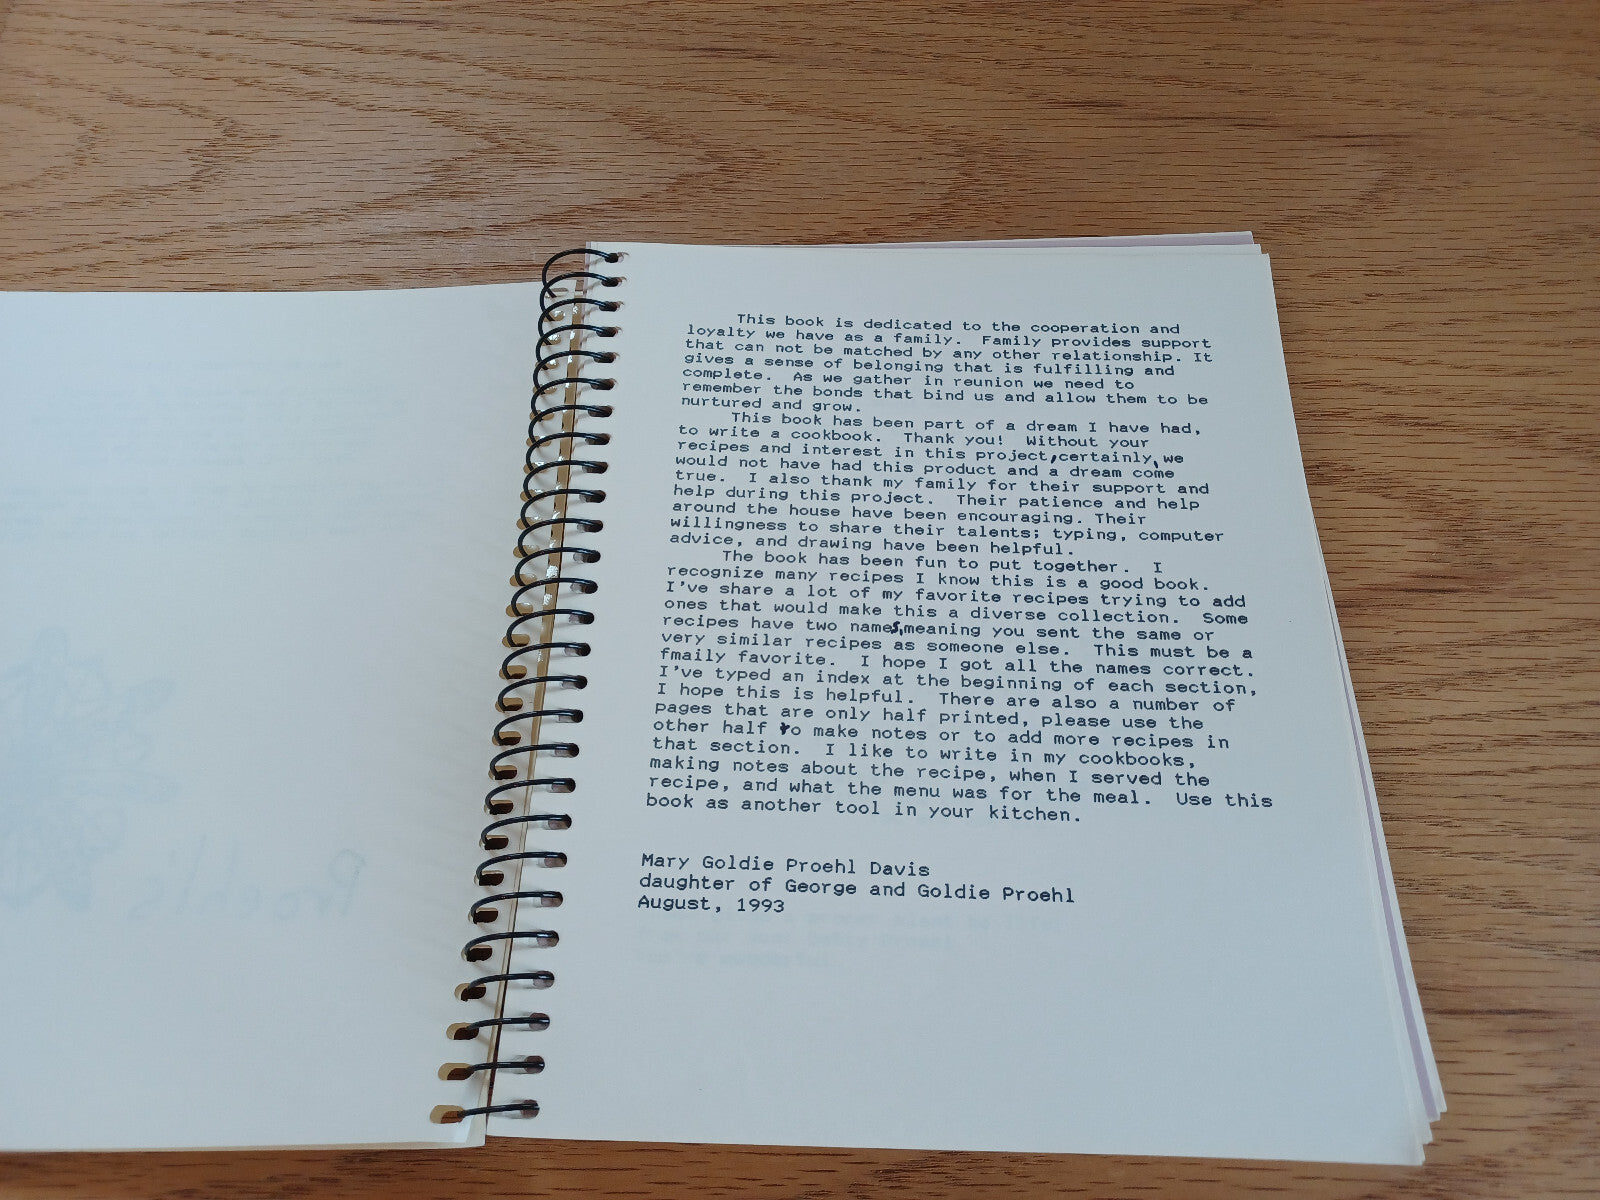 This book is dedicated to the cooperation and
loyalty we have as a family. Family provides support
that can not be matched by any other relationship. It
gives a sense of belonging that is fulfilling and
complete. As we gather in reunion we need to
remember the bonds that bind us and allow them to be
nurtured and grow.
This book has been part of a dream I have had,
to write a cookbook. Thank you! Without your
recipes and interest in this project, certainly, we
would not have had this product and a dream come
true. I also thank my family for their support and
help during this project. Their patience and help
around the house have been encouraging. Their
willingness to share their talents; typing, computer
advice, and drawing have been helpful.
The book has been fun to put together. I
recognize many recipes I know this is a good book.
I've share a lot of my favorite recipes trying to add
ones that would make this a diverse collection. Some
recipes have two names, meaning you sent the same or
very similar recipes as someone else. This must be a
fmaily favorite. I hope I got all the names correct.
I've typed an index at the beginning of each section,
I hope this is helpful. There are also a number of
pages that are only half printed, please use the
other half to make notes or to add more recipes in
that section. I like to write in my cookbooks,
making notes about the recipe, when I served the
recipe, and what the menu was for the meal. Use this
book as another tool in your kitchen.
Mary Goldie Proehl Davis
daughter of George and Goldie Proehl
August, 1993